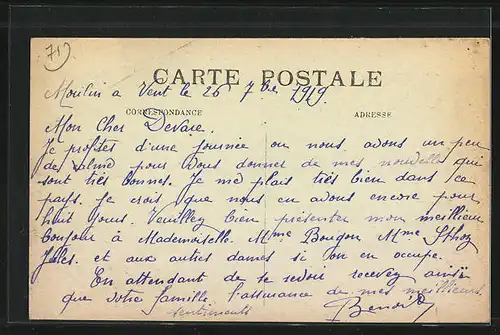 719
CARTE POSTALE
Moulin a Vent le 26 7bre 1919.
CORRESPONDANCE
ADRESSE
Mon Cher Devare.
Je profites d'une journée ou nous avons un peu
de calme pour vous donner de mes nouvelles qui
sont très bonnes. Je me plais très bien dans ce
pays. je crois que nous en avons encore pour
huit jours. Veuillez bien présenter mon meilleur
bonjour à Mademoiselle. Mme Bougon Mme
Jules. et aux autres dames si l'on en occupe.
En attendant de se revoir recevez ainsi
que votre famille l'assurance de mes meilleurs
sentiments
Benoit